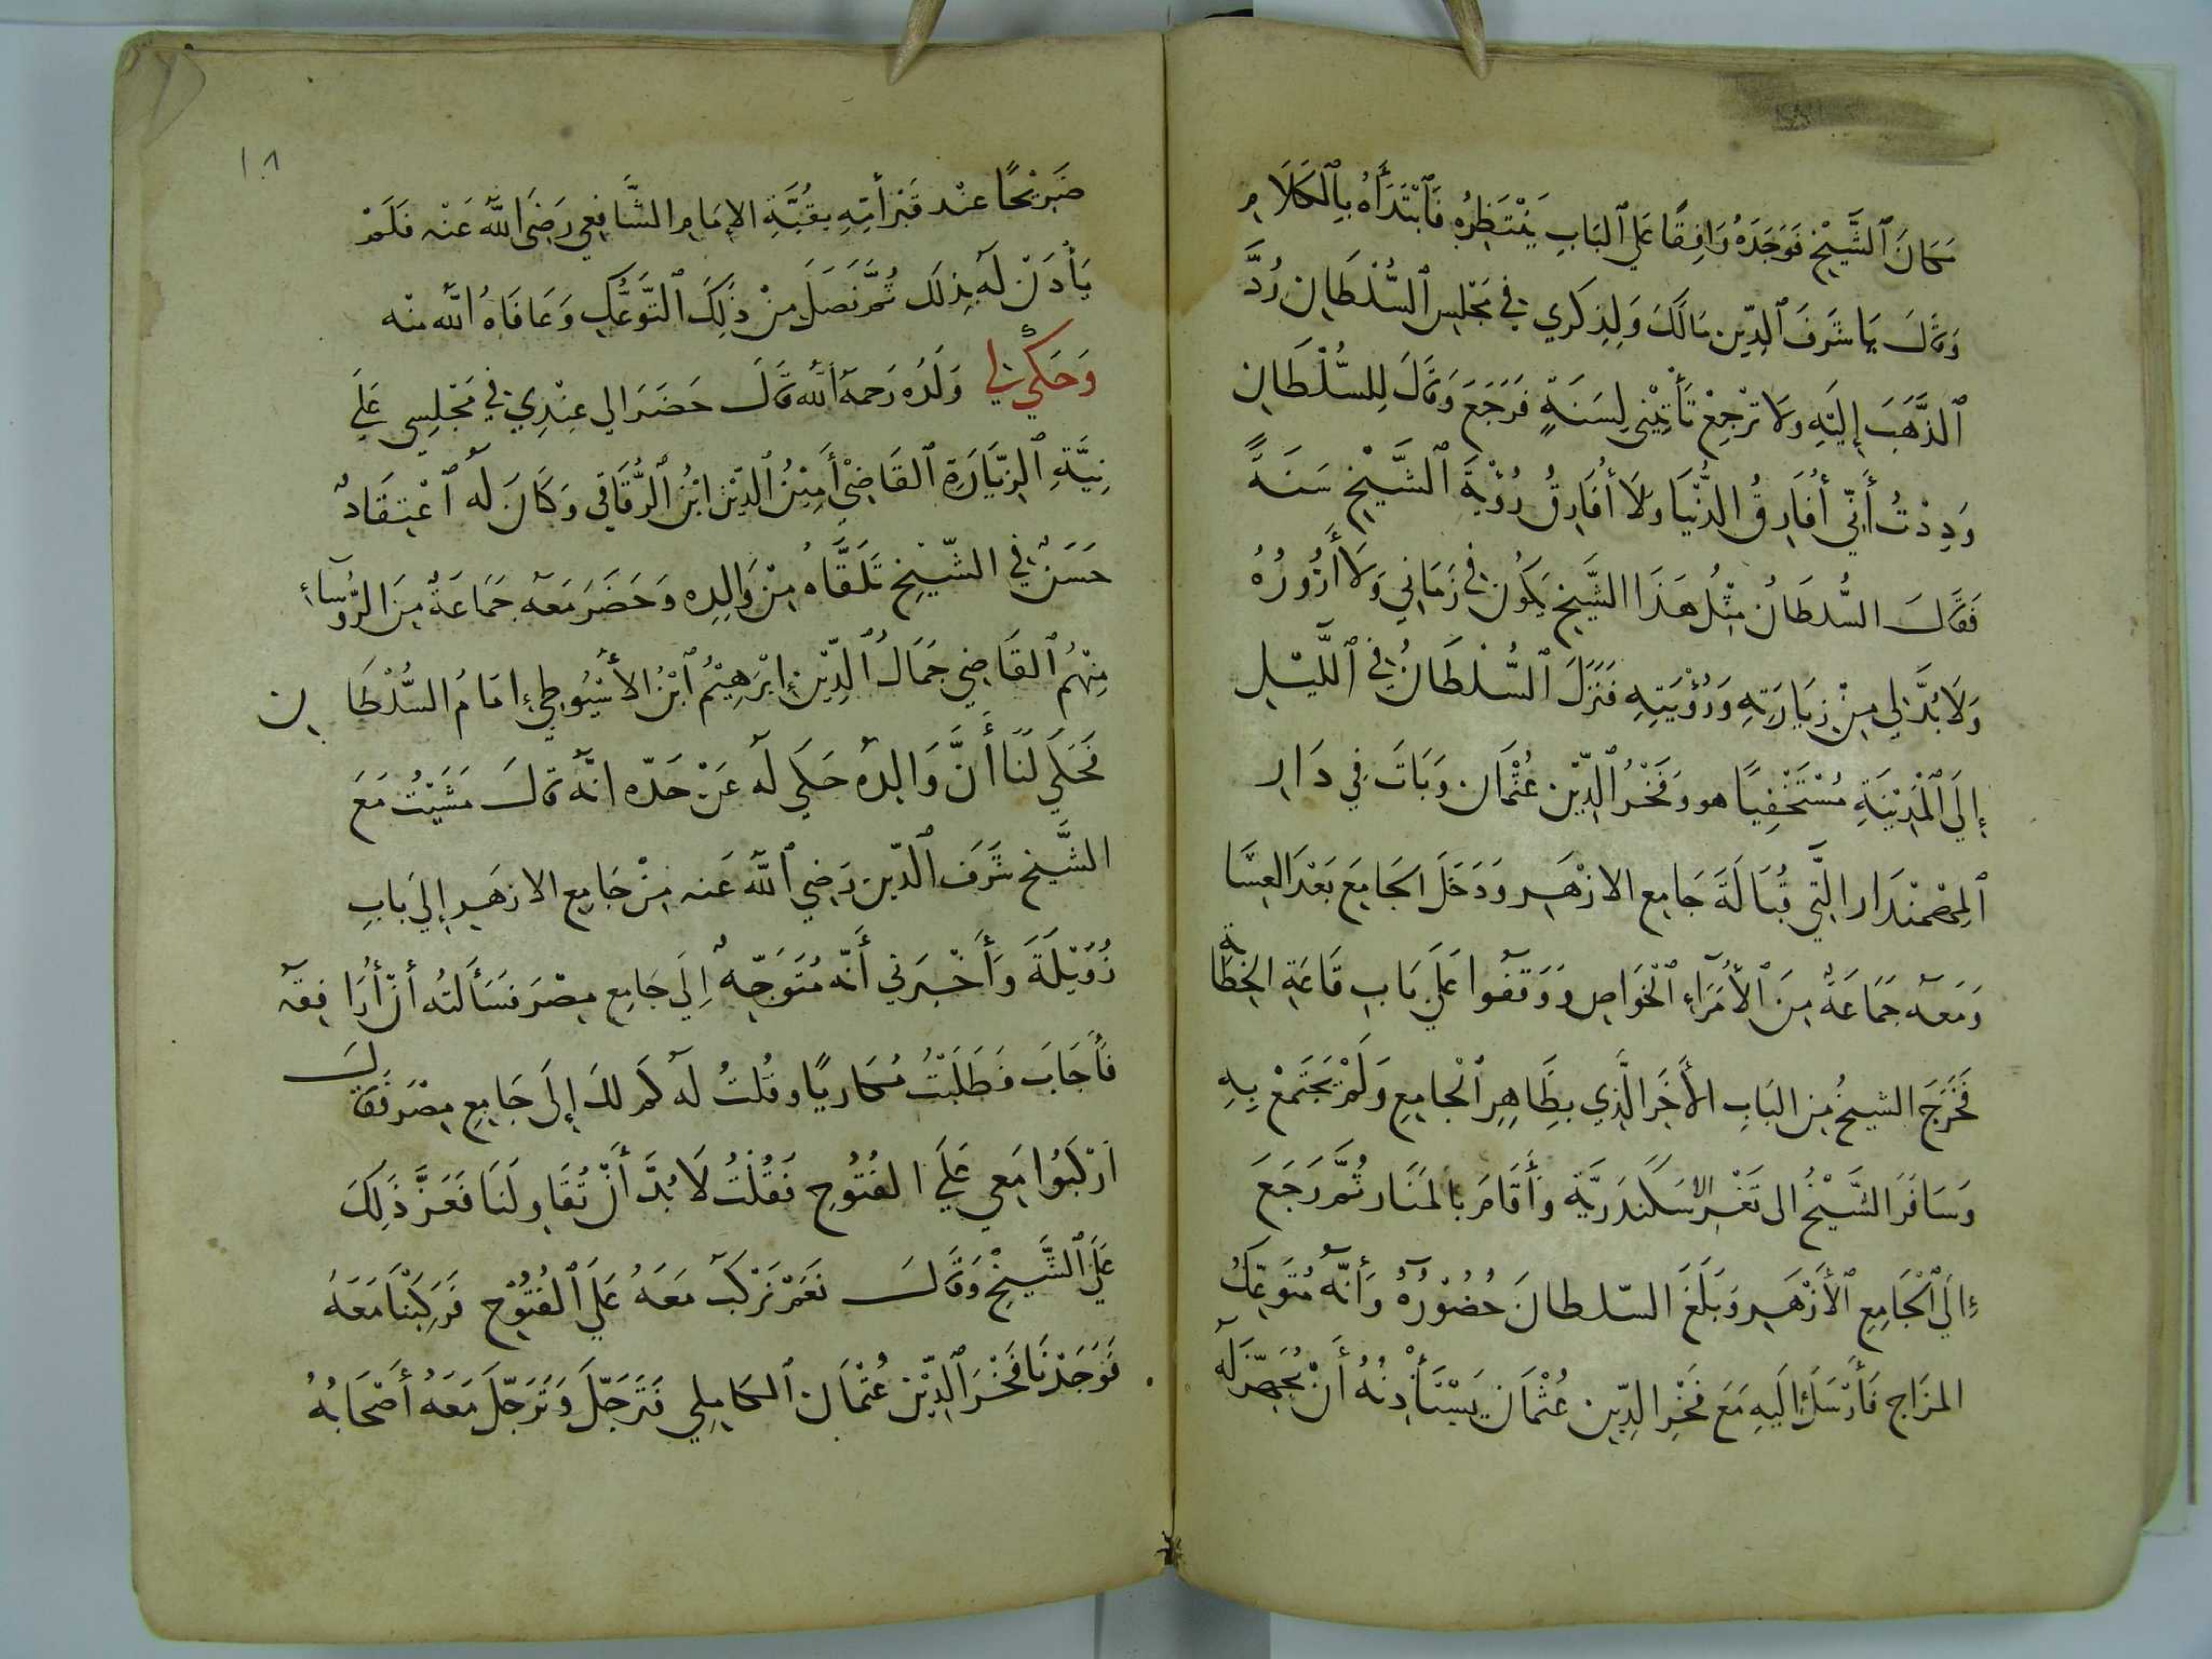 مَكَانَ ٱلشَّيْخِ فَوَجَدَهُ وَاقِفًا عَلَى ٱلبَابِ يَنْتَظِرُهُ فَٱبْتَدَأَهُ بِٱلكَلَامِ
وَقَالَ يَا شَرَفَ ٱلدِّين مَالَكَ وَلِذِكرِي فِي مَجْلِسِ ٱلسُّلْطَانِ رُدَّ
ٱلذَّهَبَ إِلَيْهِ وَلَا تَرْجِعْ تَأْتِيْنِي لِسَنَةٍ فَرَجَعَ وَقَالَ لِلسُّلْطَانِ
وَدِدْتُ أَنِّي أُفَارِقُ الدُّنْيَا وَلَا أُفَارِقُ رُؤْيَةَ ٱلشَّيْخِ سَنَةً
فَقَالَ السُّلطَانُ مِثْلُ هَذَا الشَّيخِ يَكُونُ فِي زَمَانِي وَلَا أَزُورُهُ
وَلَا بُدَّ لِي مِنْ زِيَارَتِهِ وَرُؤْيَتِهِ فَنَزَلَ ٱلسُّلْطَانُ فِي ٱللَّيْلِ
إِلَى ٱلْمَدِيْنَةِ مُسْتَخْفِيًا هو وَفَخْرُ ٱلدِّيْن عُثْمَان وَبَاتَ فِي دَارِ
ٱلمِصْمَنْدَار الَّتِي قُبَالَةَ جَامِع الازْهَرِ وَدَخَلَ الجَامِعَ بَعْدَ العِشَا
وَمَعَه جَمَاعَةٌ مِنَ ٱلأُمَرَاءِ ٱلْخَوَاصِ وَوَقَفُوا عَلَى بَابِ قَاعَةِ الخِطَابَة
فَخَرَجَ الشيخُ مِن البَابِ الأَخَرِ الَّذِي بِظَاهِرِ ٱلْجامِعِ وَلَمْ يَجْتَمِعْ بِهِ
وَسَافَرَ الشَّيْخُ الى ثَغْرِ الاسكَندَرِيَّة وَأَقَامَ بالمَنَار ثُمَّ رَجَعَ
إِلَى ٱلْجَامِعِ ٱلأَزْهَرِ وَبَلَغَ السّلطانَ حُضُوْرُهُ وَأَنَّهُ مُتَوَعِّكُ
المزَاج فَأَرْسَلَ إِلَيهِ مَعَ فَخْرِ الدِّين عُثْمَان يَسْتَأْذِنُهُ أَنْ يُجَهِّزَ لَهُ
١٨
ضَرِيْحًا عنْد قَبْرِ أُمِّهِ بِقُبَّةِ الإِمَامِ الشَّافِعِي رَضِيَ اللهُ عَنْه فَلَمْ
يَأْذَنْ لَهُ بِذلَك ثُمَّ نَصَلَ مِنْ ذَلِكَ ٱلتَّوَعُّكِ وَعَافَاهُ اللهُ منْه
وَحَكَى لِي وَلَدُه رَحمَهُ الله قَالَ حَضَرَ إلى عِنْدِي فِي مَجْلِسِي عَلَى
نِيَّةِ ٱلزِّيَارَةِ ٱلقَاضِيْ أَمِيْنُ ٱلدِّيْن ابْنُ ٱلرُّقَاقِي وَكَانَ لَهُ ٱعْتِقَادٌ
حَسَنٌ فِي الشّيْخِ تَلَقَّاهُ مِنْ وَالِدِه وَحَضَرَ مَعَه جَمَاعَةٌ مِنَ الرُّوسَآءِ
مِنْهُمُ ٱلقَاضِي جَمَالُ ٱلدِّيْن إِبْرَهِيْمُ ٱبْنُ الأَسْيُوطِي إِمَامُ السُّلْطَانِ
فَحَكَى لَنَا أَنَّ وَالِدهُ حَكَى لَه عَنْ جَدّه انَّهُ قَالَ مَشَيْتُ مَعَ
الشَّيخ شَرَف ٱلدّين رَضِيَ ٱللهُ عَنه مِنْ جَامِعِ الازهَرِ إلَى بَابِ
زُوَيْلَةَ وَأَخْبَرَنِي أَنَّهُ مُتَوَجِّهٌ إِلَى جَامِعِ مِصْرَ فَسَأَلتُه أَنْ أُرَافِقَه
فَأَجَابَ فَطَلَبْتُ مُكَارِيًا وقُلتُ لَه كَم لكَ إِلَى جَامِعِ مِصْرَ فَقَالَ
ارْكَبُوا مَعِي عَلَى الفُتُوحِ فَقُلْتُ لَا بُدَّ أَنْ تُقَاوِلَنَا فَعَزَّ ذَلِكَ
عَلَى ٱلشَّيْخِ وَقَالَ نَعَمْ نَرْكَبُ مَعَهُ عَلَى ٱلفُتُوْحِ فَرَكِبْنَا مَعَهُ
فَوَجَدْنَا فَخْرَ ٱلدِّيْن عُثْمَان ٱلكَامِلِي فَتَرَجَّلَ وَتَرَجَّلَ مَعَهُ أَصْحَابُهُ